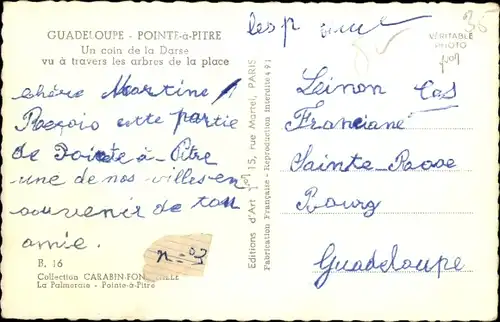 GUADELOUPE - POINTE-à-PITRE
Un coin de la Darse
vu à travers les arbres de la place
chère Martine
Reçois cette partie
de Pointe-à-Pitre
une de nos villes en
souvenir de ton
amie.
B. 16
Collection CARABIN-FON
La Palmeraie - Pointe-à-Pitre
n=03
Editions d'Art 15, rue Martel, PARIS
Fabrication Française - Reproduction Interdite 491
VÉRITABLE
PHOTO
Leinon
Franciane
Sainte-Rose
Bourg
Guadeloupe